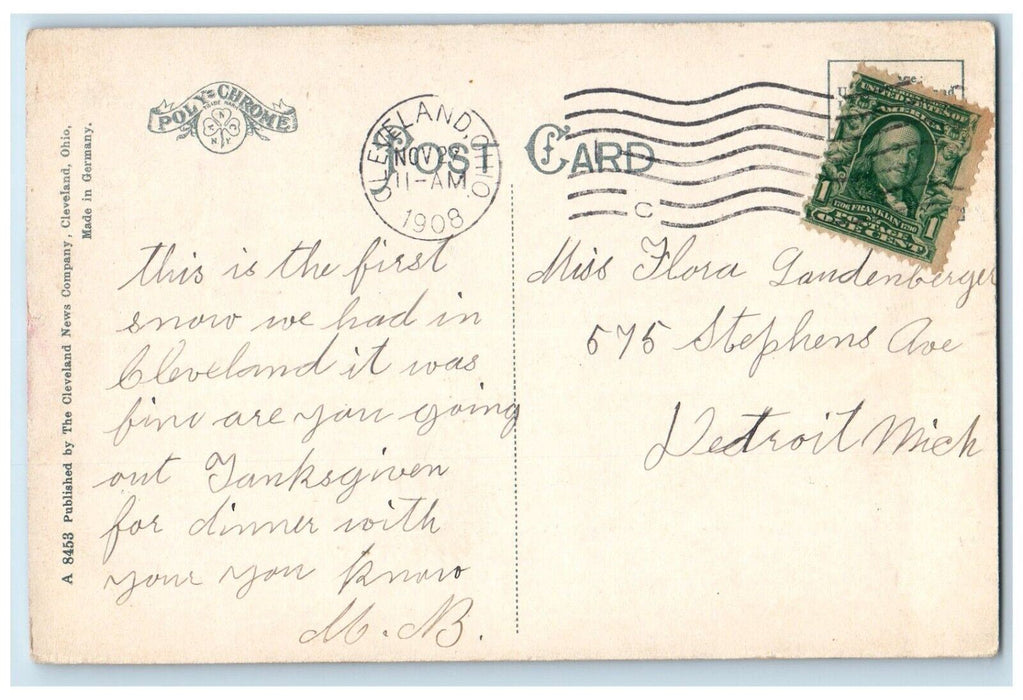 POLY-CHROME
TRADE MARK
POST CARD
CLEVELAND, OHIO.
NOV
11-AM
1908
C
UNITED STATES OF
AMERICA
1706 FRANKLIN 1790
POSTAGE
1 ONE CENT 1
A 8453 Published by The Cleveland News Company, Cleveland, Ohio,
Made in Germany.
this is the first
snow we had in
Cleveland it was
fine are you going
out Tanksgiven
for dinner with
your you know
M. B.
Miss Flora Landenberger
575 Stephens Ave
Detroit Mich